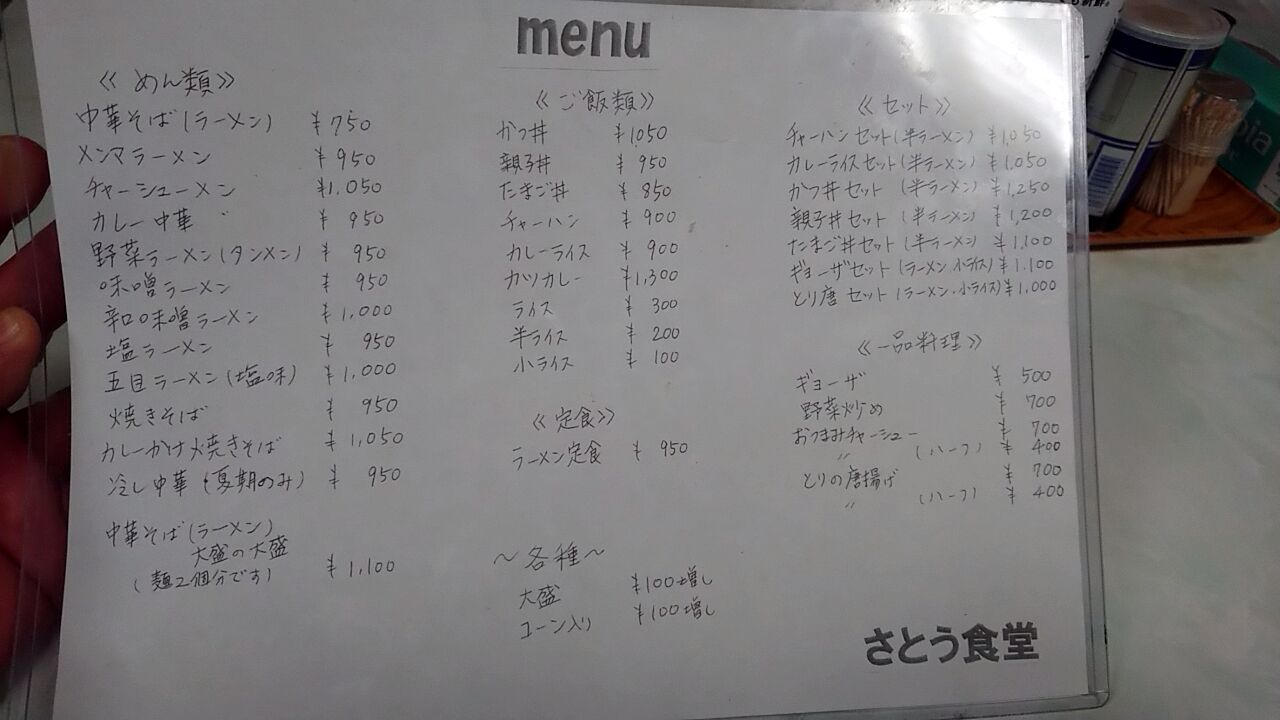 menu
≪めん類≫
中華そば(ラーメン) ¥750
メンマラーメン ¥950
チャーシューメン ¥1,050
カレー中華 ¥950
野菜ラーメン(タンメン) ¥950
味噌ラーメン ¥950
辛口味噌ラーメン ¥1,000
塩ラーメン ¥950
五目ラーメン(塩味) ¥1,000
焼きそば ¥950
カレーかけ焼きそば ¥1,050
冷し中華(夏期のみ) ¥950
中華そば(ラーメン)
大盛の大盛
(麺2個分です) ¥1,100
≪ご飯類≫
かつ丼 ¥1,050
親子丼 ¥950
たまご丼 ¥850
チャーハン ¥900
カレーライス ¥900
カツカレー ¥1,300
ライス ¥300
半ライス ¥200
小ライス ¥100
≪定食≫
ラーメン定食 ¥950
~各種~
大盛 ¥100増し
コーン入り ¥100増し
≪セット≫
チャーハンセット(半ラーメン) ¥1,050
カレーライスセット(半ラーメン) ¥1,050
かつ丼セット(半ラーメン) ¥1,250
親子丼セット(半ラーメン) ¥1,200
たまご丼セット(半ラーメン) ¥1,100
ギョーザセット(ラーメン.小ライス) ¥1,100
とり唐セット(ラーメン.小ライス) ¥1,000
≪一品料理≫
ギョーザ ¥500
野菜炒め ¥700
おつまみチャーシュー ¥700
〃 (ハーフ) ¥400
とりの唐揚げ ¥700
〃 (ハーフ) ¥400
さとう食堂